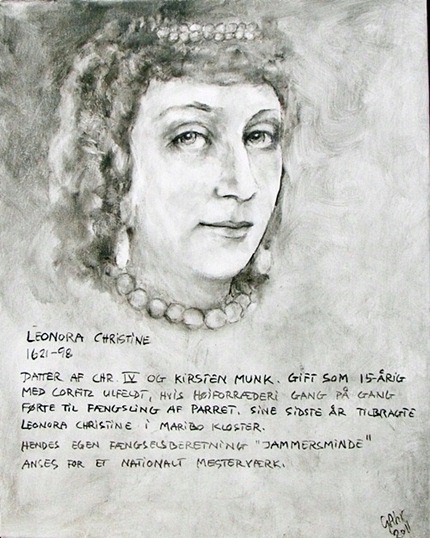 LEONORA CHRISTINE
1621-98
DATTER AF CHR. IV OG KIRSTEN MUNK. GIFT SOM 15-ÅRIG
MED CORFITZ ULFELDT, HVIS HØJFORRÆDERI GANG PÅ GANG
FØRTE TIL FÆNGSLING AF PARRET. SINE SIDSTE ÅR TILBRAGTE
LEONORA CHRISTINE I MARIBO KLOSTER.
HENDES EGEN FÆNGSELSBERETNING "JAMMERSMINDE"
ANSES FOR ET NATIONALT MESTERVÆRK.
2011